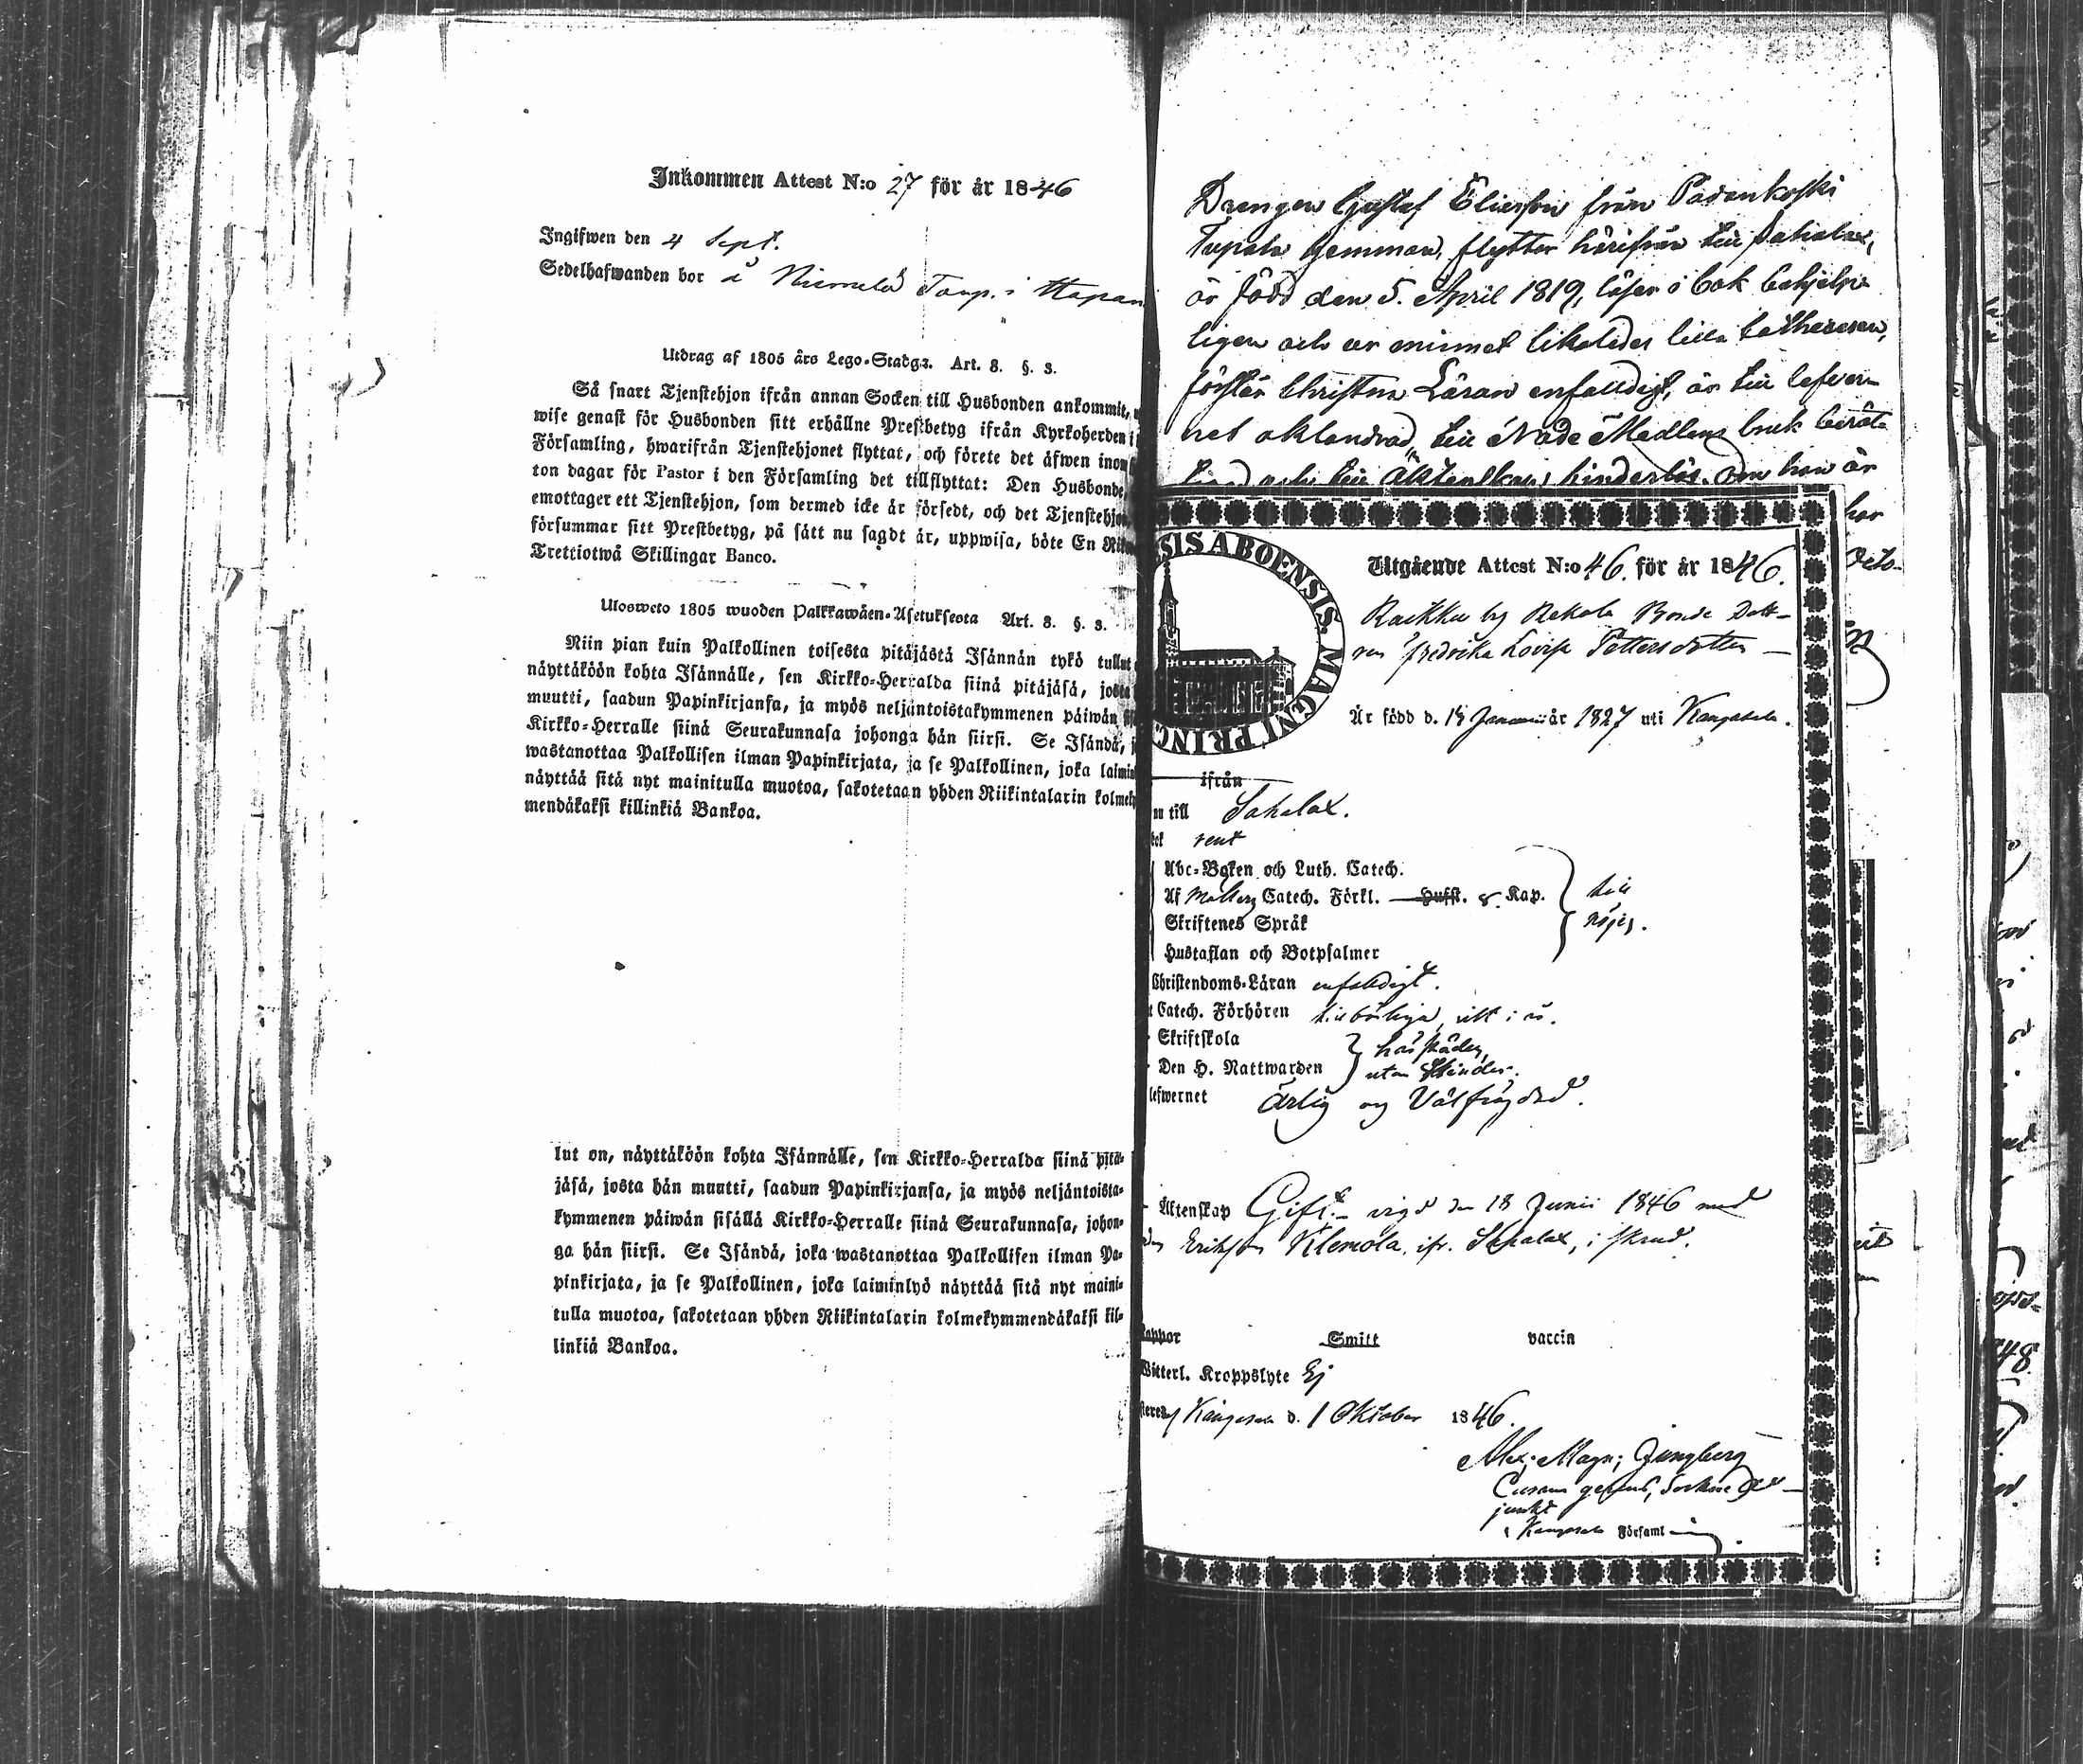 Inkommen Attest N:o 27 för år 1846
Ingifwen den 4 Sept.
Sedelhafwanden bor å Niemelä Torp. i Hapan
Utdrag af 1805 års Lego-Stadga. Art. 8. §. 3.
Så snart Tjenstehjon ifrån annan Socken till Husbonden ankommit,
wise genast för Husbonden sitt erhållne Prestbetyg ifrån Kyrkoherden i
Församling, hwarifrån Tjenstehjonet flyttat, och förete det äfwen inom
ton dagar för Pastor i den Församling det tillflyttat: Den Husbonde,
emottager ett Tjenstehjon, som dermed icke är försedt, och det Tjenstehjon
försummar sitt Prestbetyg, på sätt nu sagdt är, uppwisa, böte En Riks
Trettiotwå Skillingar Banco.
Ulosweto 1805 wuoden Palkkawäen-Asetuksesta Art. 8. §. 3.
Niin pian kuin Palkollinen toisesta pitäjästä Isännän tykö tullut
näyttäköön kohta Isännälle, sen Kirkko-Herralda siinä pitäjäsä, josta
muutti, saadun Papinkirjansa, ja myös neljäntoistakymmenen päiwän
Kirkko-Herralle siinä Seurakunnasa johonga hän siirsi. Se Isändä,
wastanottaa Palkollisen ilman Papinkirjata, ja se Palkollinen, joka laimin
näyttää sitä nyt mainitulla muotoa, sakotetaan yhden Riikintalarin kolmeky
mendäkaksi killinkiä Bankoa.
lut on, näyttäköön kohta Isännälle, sen Kirkko-Herralda siinä pitä-
jäsä, josta hän muutti, saadun Papinkirjansa, ja myös neljäntoista-
kymmenen päiwän sisällä Kirkko-Herralle siinä Seurakunnasa, johon-
ga hän siirsi. Se Isändä, joka wastanottaa Palkollisen ilman Pa-
pinkirjata, ja se Palkollinen, joka laiminlyö näyttää sitä nyt maini-
tulla muotoa, sakotetaan yhden Riikintalarin kolmekymmendäkaksi kil-
linkiä Bankoa.
Drengen Gustaf Eliesson från Padankoski
Tupala hemman, flyttar härifrån till Sahalax,
är född den 5. April 1819, läser i bok behjelpe
ligen och ur minnet likaledes lilla Cathesesen,
förstår Christna Läran enfaldigt, är till lefver-
net oklandrad, till Nåde Medlens bruk beräta
till Äktenskap hinderlös. Om han är
har
Octo-
SIS ABOENSIS. MAGNI PRINC
Utgående Attest N:o 46. för år 1846.
Raikku by Rekola Bonde Dott-
ren Fredrika Lovisa Pettersdotter
Är född d. 15 Januarii år 1827 uti Kangasala.
ifrån
nu till Sahalax.
bok rent
Abc-Boken och Luth. Catech.
Af Molters Catech. Förkl. Hufst. 8. Kap.
Skriftenes Språk
Hustaflan och Botpsalmer
till
nöjes.
Christendoms-Läran enfaldigt.
t Catech. Förhören tillbörliga, sitt i år.
Skriftskola
Den H. Nattwarden
utan hinder.
lefwernet Ärlig og Välfrägdad.
Äktenskap Gift. vigd den 18 Junii 1846 med
Eriksson Klemola, ifr. Sahalax, i skrud.
Koppor Smitt vaccin
Witterl. Kroppslyte Ej
Kangasala d. 1 Oktober 1846.
Alex: Magn: Ljungberg
Curam gerens, Sockne Ad-
junkt
i Kangasala Församl
48